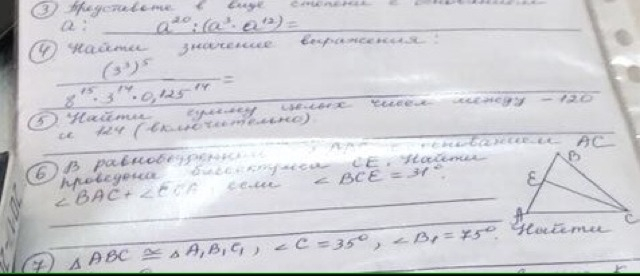 ③ Представьте в виде степени с основанием
a: a²⁰ : (a³ · a¹²) =
④ Найти значение выражения:
(3³)⁵
8¹⁵ · 3¹⁴ · 0,125¹⁴ =
⑤ Найти сумму целых чисел между −120
и 124 (включительно).
⑥ В основанием AC
проведена биссектриса CE. Найти
∠BAC + ∠ECA, если ∠BCE = 31°.
B
E
A
C
⑦ △ABC ≅ △A₁B₁C₁, ∠C = 35°, ∠B₁ = 75°. Найти